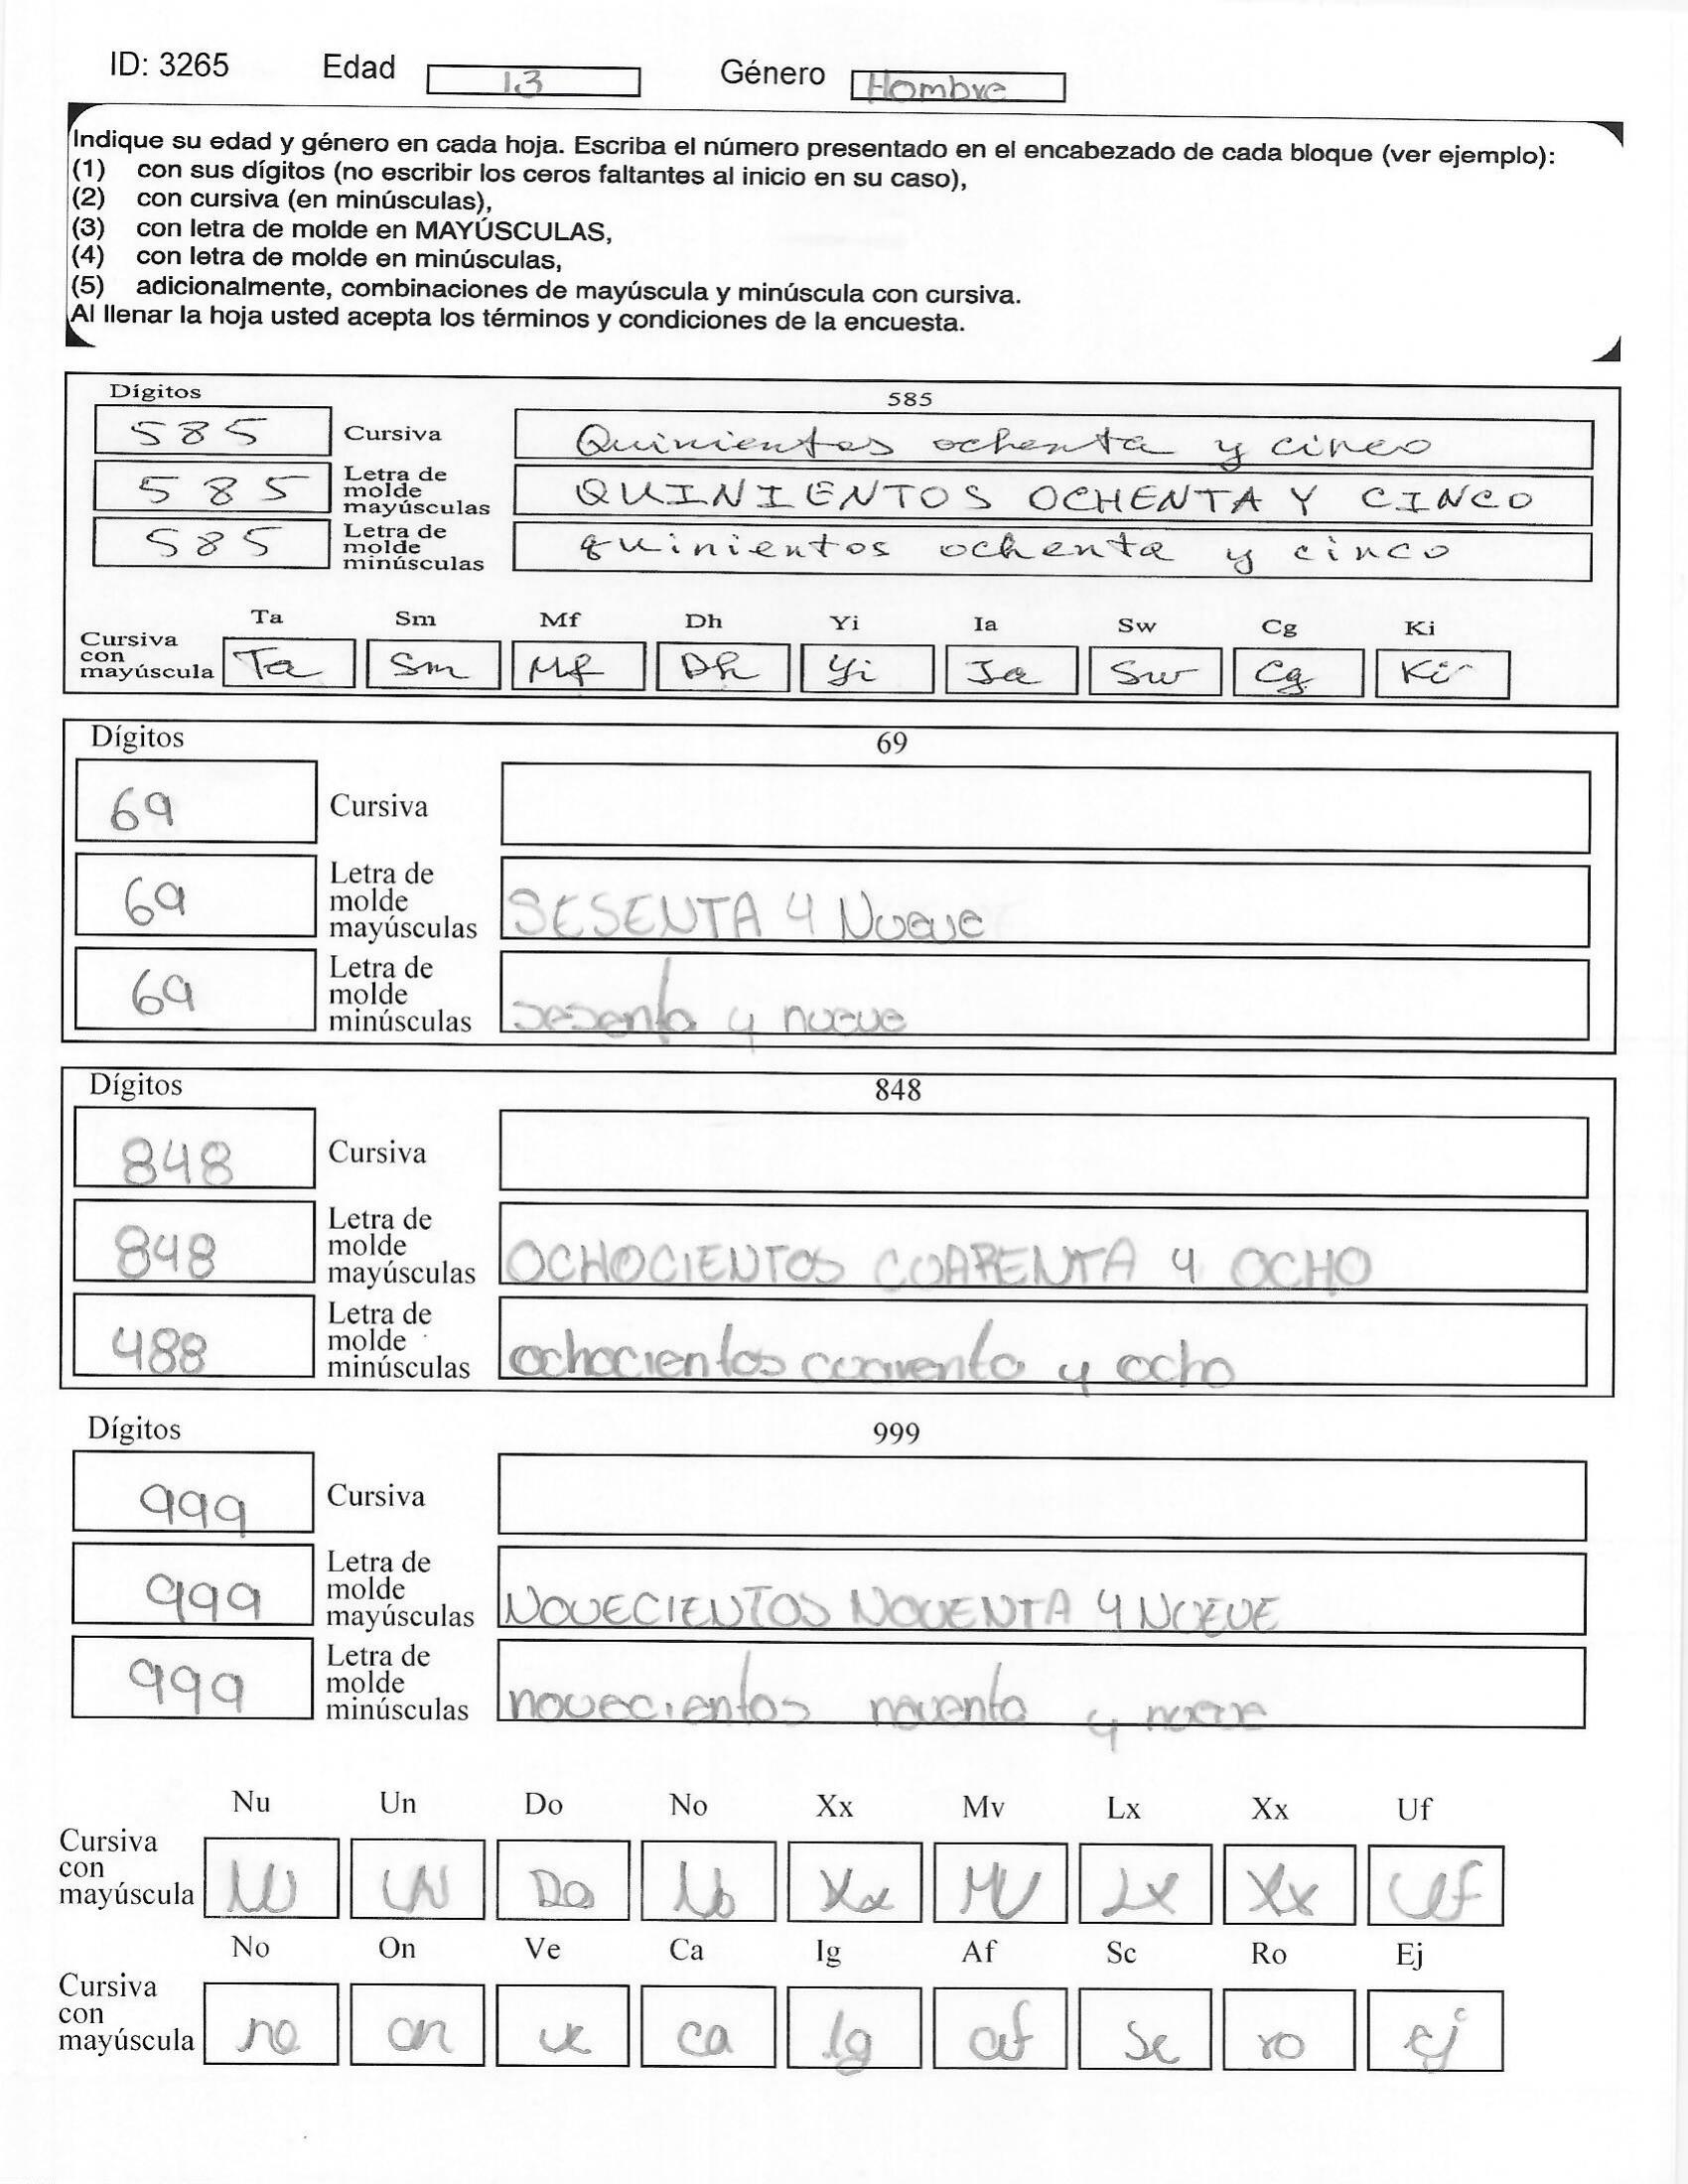 ID: 3265 Edad 13 Género Hombre
Indique su edad y género en cada hoja. Escriba el número presentado en el encabezado de cada bloque (ver ejemplo):
(1) con sus dígitos (no escribir los ceros faltantes al inicio en su caso),
(2) con cursiva (en minúsculas),
(3) con letra de molde en MAYÚSCULAS,
(4) con letra de molde en minúsculas,
(5) adicionalmente, combinaciones de mayúscula y minúscula con cursiva.
Al llenar la hoja usted acepta los términos y condiciones de la encuesta.
Dígitos 585
585 Cursiva Quinientos ochenta y cinco
585 Letra de molde mayúsculas QUINIENTOS OCHENTA Y CINCO
585 Letra de molde minúsculas quinientos ochenta y cinco
Ta Sm Mf Dh Yi Ia Sw Cg Ki
Cursiva con mayúscula Ta Sm Mf Dh Yi Ia Sw Cg Ki
Dígitos 69
69 Cursiva
69 Letra de molde mayúsculas SESENTA Y Nueve
69 Letra de molde minúsculas sesenta y nueve
Dígitos 848
848 Cursiva
848 Letra de molde mayúsculas OCHOCIENTOS CUARENTA Y OCHO
488 Letra de molde minúsculas ochocientos cuarenta y ocho
Dígitos 999
999 Cursiva
999 Letra de molde mayúsculas NOVECIENTOS NOVENTA Y NUEVE
999 Letra de molde minúsculas novecientos noventa y nueve
Nu Un Do No Xx Mv Lx Xx Uf
Cursiva con mayúscula NU UN Do No Xx MV Lx Xx Uf
No On Ve Ca Ig Af Sc Ro Ej
Cursiva con mayúscula no on ve ca Ig af Sc ro ej